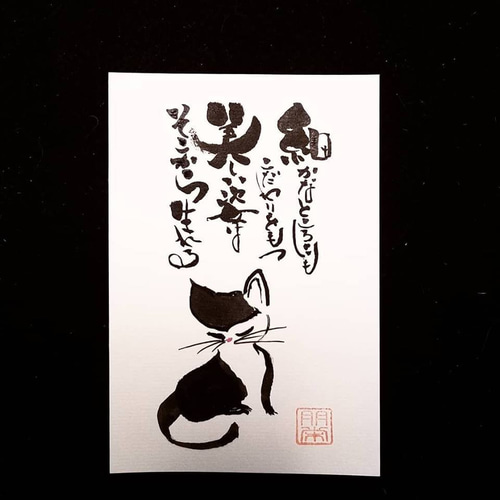 細かなところにも
こだわりをもつ
美しい姿は
そこから生まれる